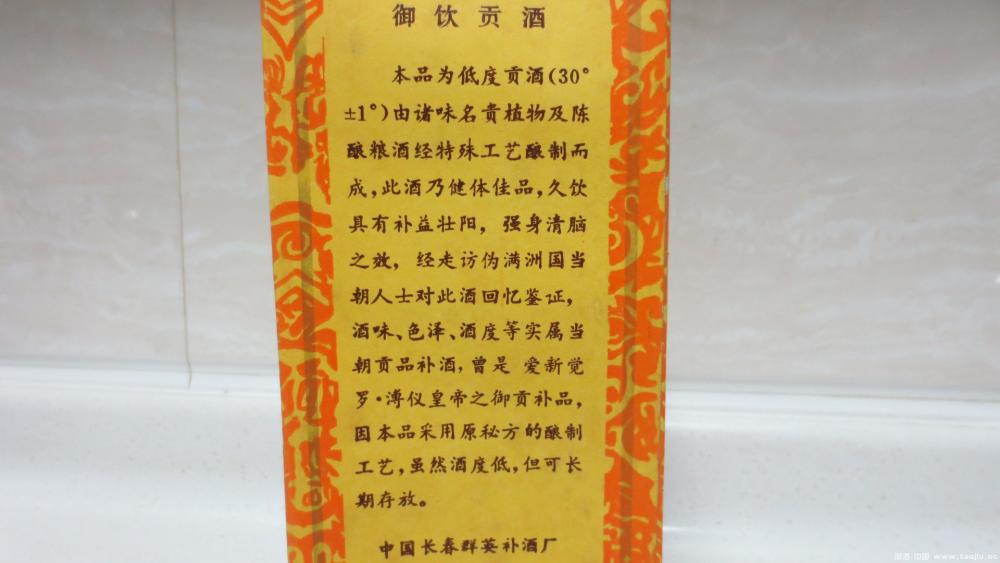 御饮贡酒
本品为低度贡酒(30°
±1°)由诸味名贵植物及陈
酿粮酒经特殊工艺酿制而
成,此酒乃健体佳品,久饮
具有补益壮阳，强身清脑
之效，经走访伪满洲国当
朝人士对此酒回忆鉴证,
酒味、色泽、酒度等实属当
朝贡品补酒,曾是 爱新觉
罗·溥仪皇帝之御贡补品,
因本品采用原秘方的酿制
工艺,虽然酒度低,但可长
期存放。
中国长春群英补酒厂
www.taojiu.cc